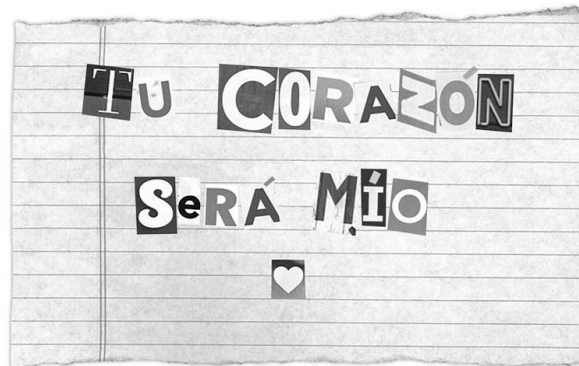 Tu CORAZÓN
SeRÁ MÍO